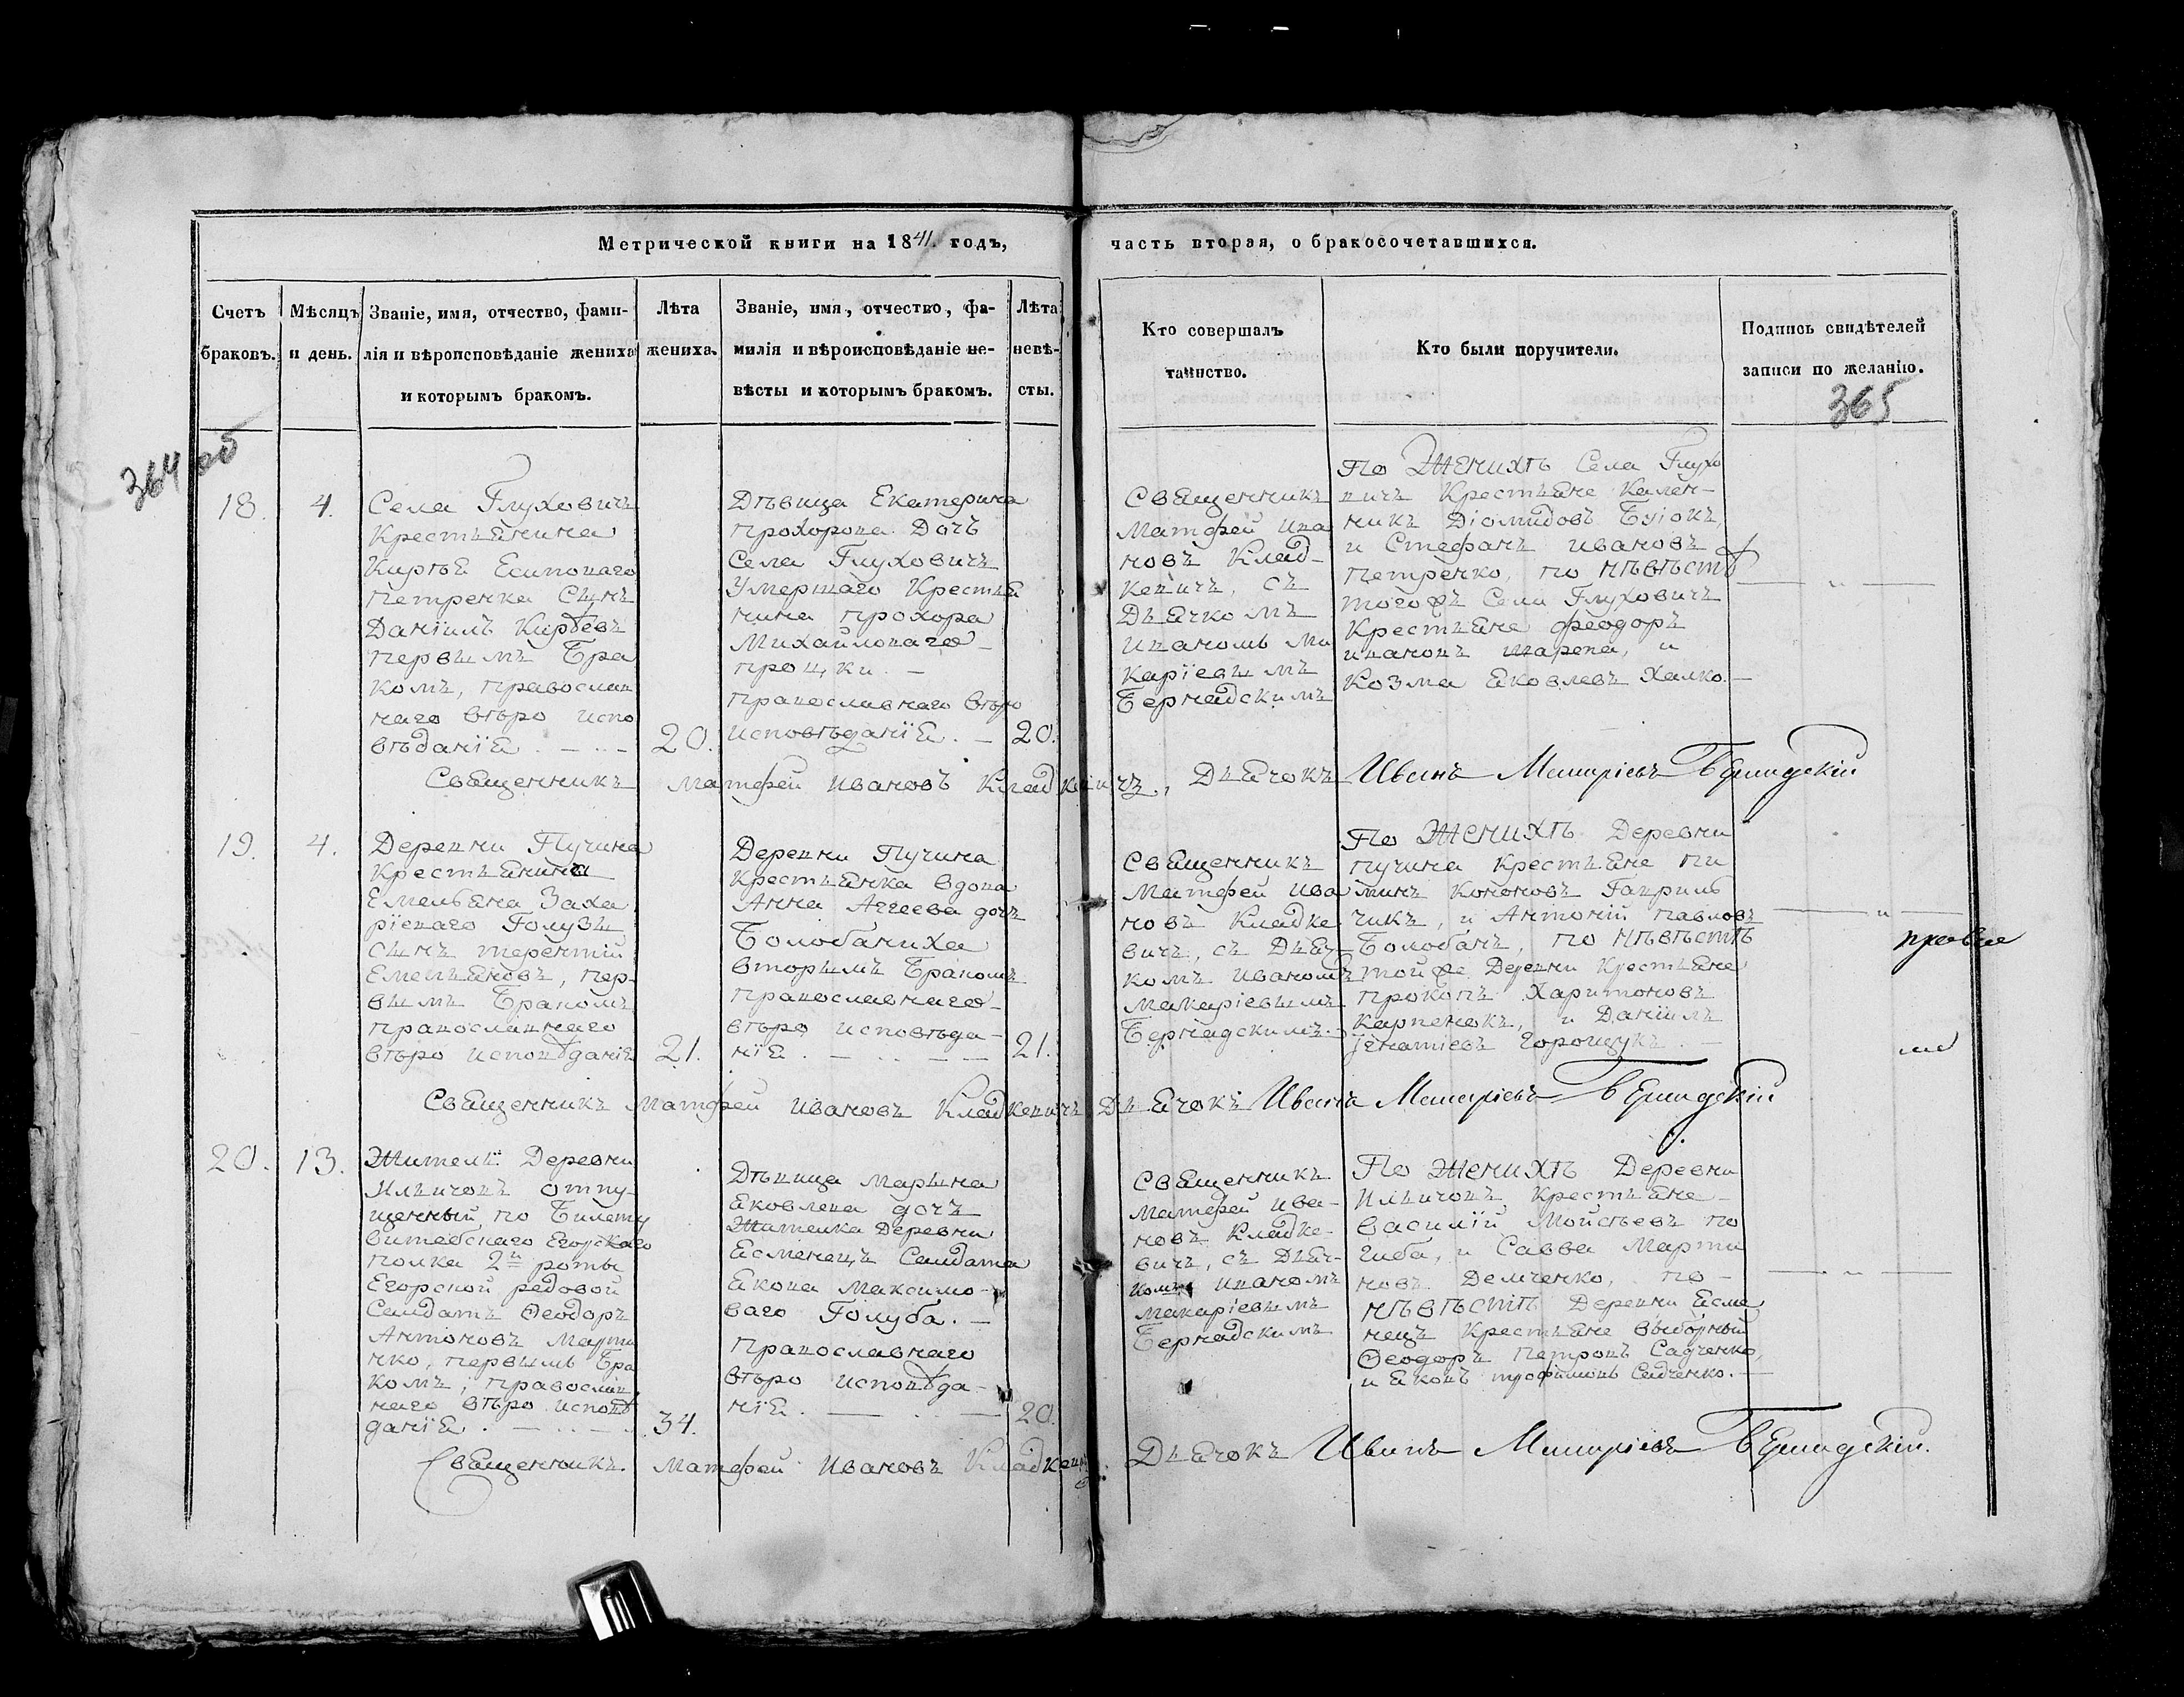 Метрической книги на 1841. годъ,
часть вторая, о бракосочетавшихся.
Счетъ браковъ.
Мѣсяцъ и день.
Званіе, имя, отчество, фами-
лія и вѣроисповѣданіе жениха
и которымъ бракомъ.
Лѣта
жениха.
Званіе, имя, отчество, фа-
милія и вѣроисповѣданіе не-
вѣсты и которымъ бракомъ.
Лѣта
невѣ-
сты.
Кто совершалъ
таинство.
Кто были поручители.
Подпись свидѣтелей
записи по желанію.
364 об
365
18.
4.
Села Глуховичъ
Крестьянина
Кирѣя Есиповаго
Петренка Сынъ
Даніилъ Кирѣевъ
первымъ Бра
комъ, православ
наго вѣро испо
вѣданія.
20.
Дѣвица Екатерина
Прохорова Дочь
Села Глуховичъ
Умершаго Крестья
нина Прохора
Михайловаго
Процки.
Православнаго вѣро
исповѣданія.
20.
Священникъ
Матфей Ива
новъ Клад-
кевичъ, съ
Дьячкомъ
Иваномъ Ма
каріевымъ
Бернадскимъ
По Женихѣ Села Глухо
вичъ Крестьяне Кален-
никъ Діомидовъ
и Стефанъ Ивановъ
Петренко, по Невѣстѣ
тогожъ Села Глуховичъ
Крестьяне Феодоръ
Ивановъ и
Козма Яковлевъ Халко.
Священникъ Матфей Ивановъ Кладкевичъ, Дьячокъ Иванъ Макаріевъ Бернадскій
19.
4.
Деревни Пучина
Крестьянина
Емельяна Заха
ріеваго Голубы
Сынъ Терентій
Емельяновъ, пер-
вымъ Бракомъ
православнаго
вѣро исповѣданія
21.
Деревни Пучина
Крестьянка вдова
Анна Аггеева дочь
Болобаниха
вторымъ Бракомъ
православнаго
вѣро исповѣда-
нія.
21.
Священникъ
Матфей Ива
новъ Кладке-
вичъ, съ Дьяч-
комъ Иваномъ
Макаріевымъ
Бернадскимъ.
По Женихѣ Деревни
Пучина Крестьяне Пи
минъ Кононовъ Гавриль
чикъ, и Антоній Павловъ
Болобанъ, по Невѣстѣ
той же Деревни Крестьяне
Прокопъ Харитоновъ
Карпенокъ, и Даніилъ
Игнатіевъ Горощукъ.
Священникъ Матфей Ивановъ Кладкевичъ Дьячокъ Иванъ Макаріевъ Бернадскій
20.
13.
Житель Деревни
Ильичовъ отпу-
щенный по Билету
Витебскаго Егорскаго
полка 2й роты
Егорской редовой
Салдатъ Ѳеодоръ
Антоновъ Марти
нко, первымъ Бра
комъ, православ
наго вѣро исповѣ
данія.
34.
Дѣвица Марына
Яковлева дочь
Жителка Деревни
Есменецъ Салдата
Якова Максимо-
ваго Голуба.
Православнаго
вѣро исповѣда-
нія.
20.
Священникъ
Матфей Ива-
новъ Кладке-
вичъ, съ Дьяч-
комъ Иваномъ
Макаріевымъ
Бернадскимъ
По Женихѣ Деревни
Ильичовъ Крестьяне
Василій Мойсѣевъ По
гиба, и Савва Марти
новъ Демченко, по
Невѣстѣ Деревни Есме
нецъ Крестьяне выборный
Ѳеодоръ Петровъ Садченко,
и Яковъ Трофимовъ Садченко.
Священникъ Матфей Ивановъ Кладкевичъ. Дьячокъ Иванъ Макаріевъ Бернадскій.